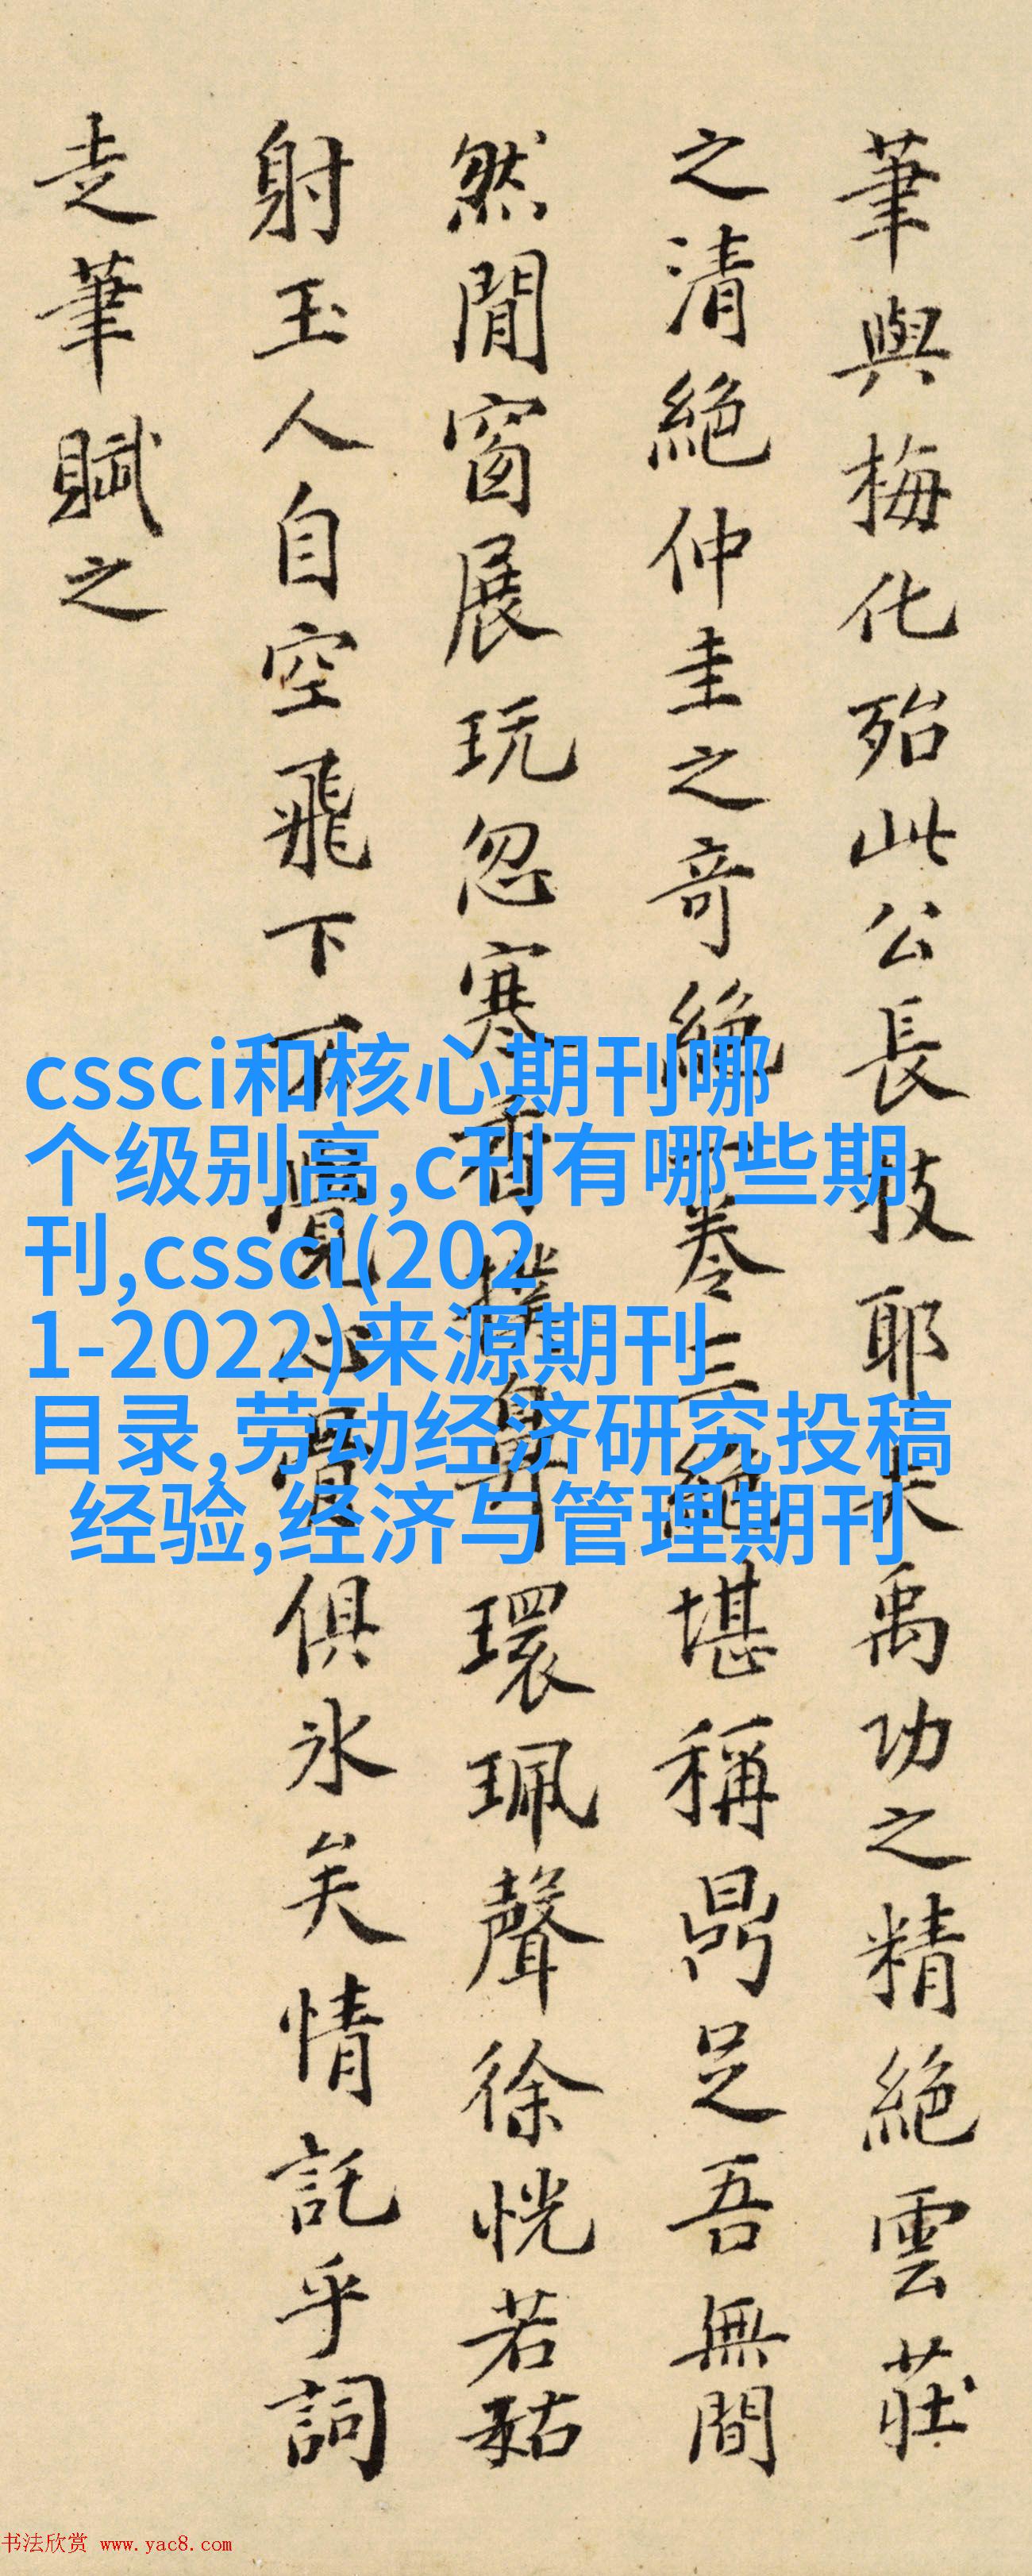 筆與梅化殆此公長技耶夫禹功之精絶雲莊
之清絶仲圭之奇絶一卷三絶堪稱鼎足吾無間
然閒窗展玩忽寒香撲鼻環珮聲徐恍若
射玉人自空飛下不覺心骨俱氷矣情託乎詞
走筆賦之
cssci和核心期刊哪
个级别高,c刊有哪些期
刊,cssci(202
1-2022)来源期刊
目录,劳动经济研究投稿
经验,经济与管理期刊
书法欣赏 www.yac8.com